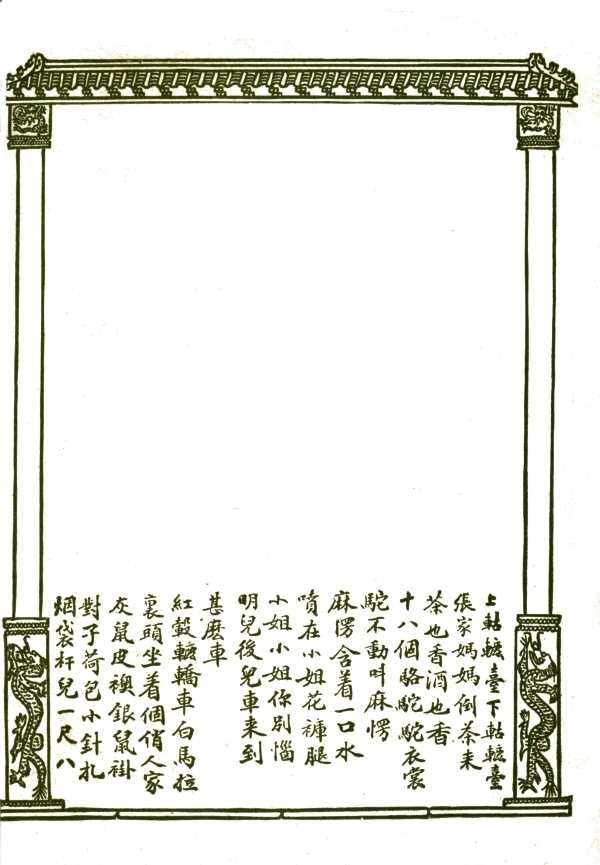 上轱轆臺下轱轆臺
張家媽媽倒茶来
茶也香酒也香
十八個駱駝駝衣裳
駝不動叫麻愣
麻愣含着一口水
噴在小姐花褲腿
小姐小姐你别惱
明兒後兒車来到
甚麽車
紅轂轆轎車白馬拉
裏頭坐着個俏人家
灰鼠皮襖銀鼠褂
對子荷包小針扎
烟袋杆兒一尺八